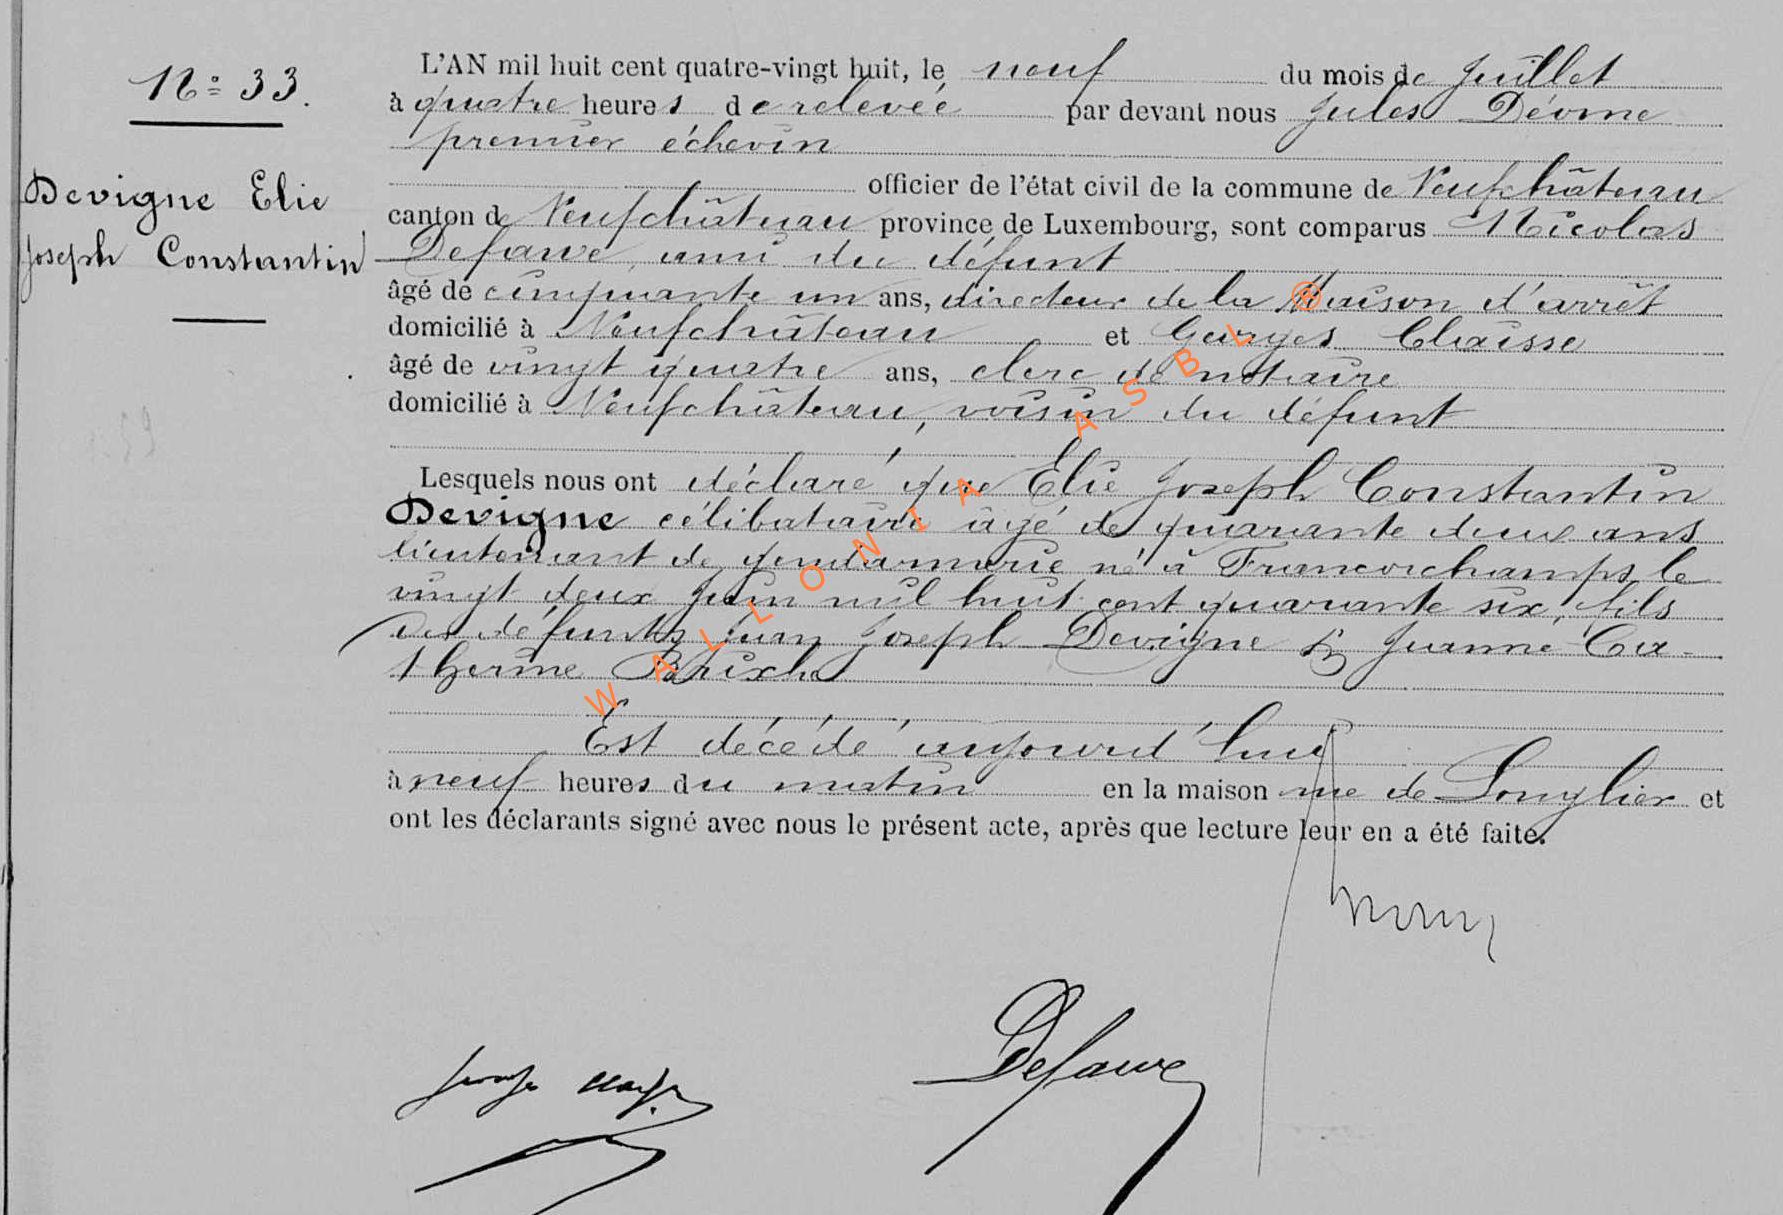 N° 33.
Devigne Elie
Joseph Constantin
L'AN mil huit cent quatre-vingt huit, le neuf du mois de Juillet
à quatre heures de relevée par devant nous Jules Déome
premier échevin
officier de l'état civil de la commune de Neufchâteau
canton de Neufchâteau province de Luxembourg, sont comparus Nicolas
Defawe, ami du défunt
âgé de cinquante un ans, directeur de la Maison d'arrêt
domicilié à Neufchâteau et Georges Claisse
âgé de vingt quatre ans, clerc de notaire
domicilié à Neufchâteau, voisin du défunt
Lesquels nous ont déclaré que Elie Joseph Constantin
Devigne célibataire âgé de quarante deux ans
lieutenant de gendarmerie né à Francorchamps le
vingt deux Juin mil huit cent quarante six, fils
des défunts Jean Joseph Devigne & Jeanne Ca-
therine Brixhe
Est décédé aujourd'hui
à neuf heures du matin en la maison rue de Longlier et
ont les déclarants signé avec nous le présent acte, après que lecture leur en a été faite.
Defawe
WALLONIA ASBL ®